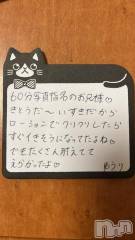 60分写真指名のお兄様♡
きとうだ〜いすきだから
ローションでクリクリしたら
すぐイきそうになってたね♡
でもたくさん耐えてて
えらかったよ♡
ゆうり